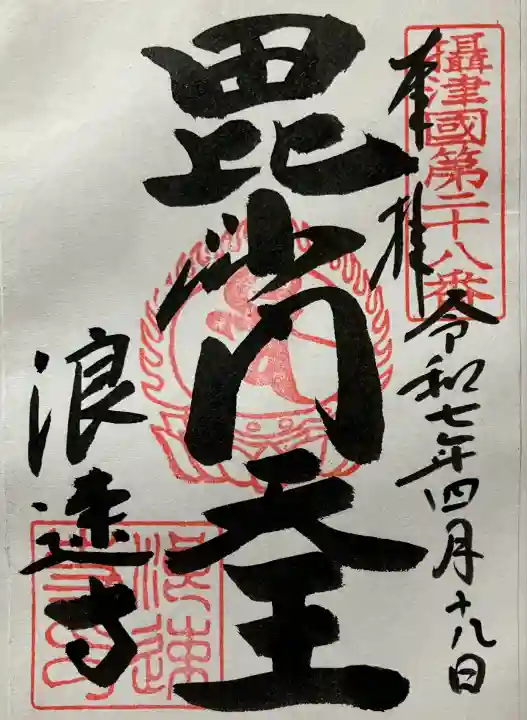 攝津國第二十八番
奉拝
令和七年四月十八日
毘沙門天王
浪速寺
浪速寺